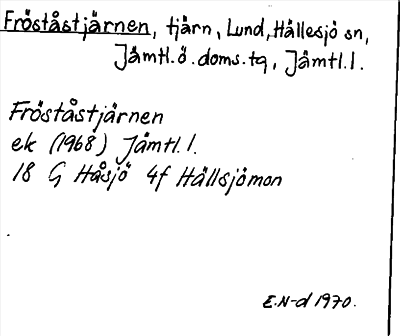 Fröståstjärnen, tjärn, Lund, Hällesjö sn,
Jämtl.ö.doms.tg, Jämtl.l.
Fröståstjärnen
ek (1968) Jämtl.l.
18 G Håsjö 4f Hällsjömon
E.N-d 1970.